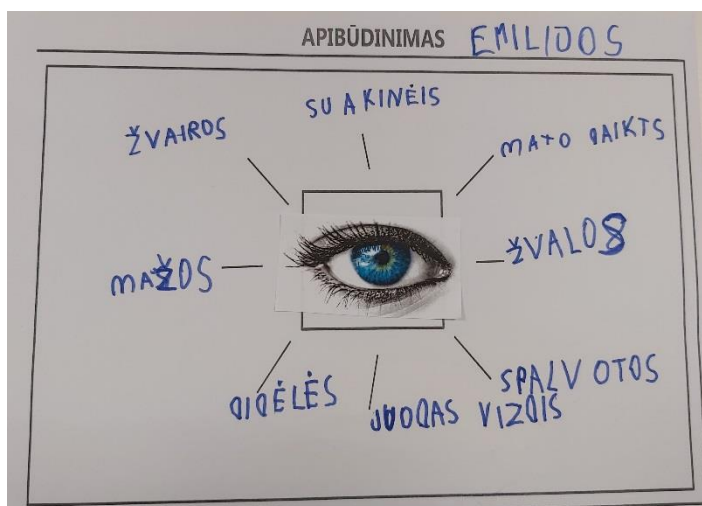 APIBŪDINIMAS EMILIJOS
SU AKINĖIS
ŽVAIROS
MATO DAIKTS
MAŽOS
ŽVALOS
DIDĖLĖS
JUODAS VIZDIS
SPALVOTOS